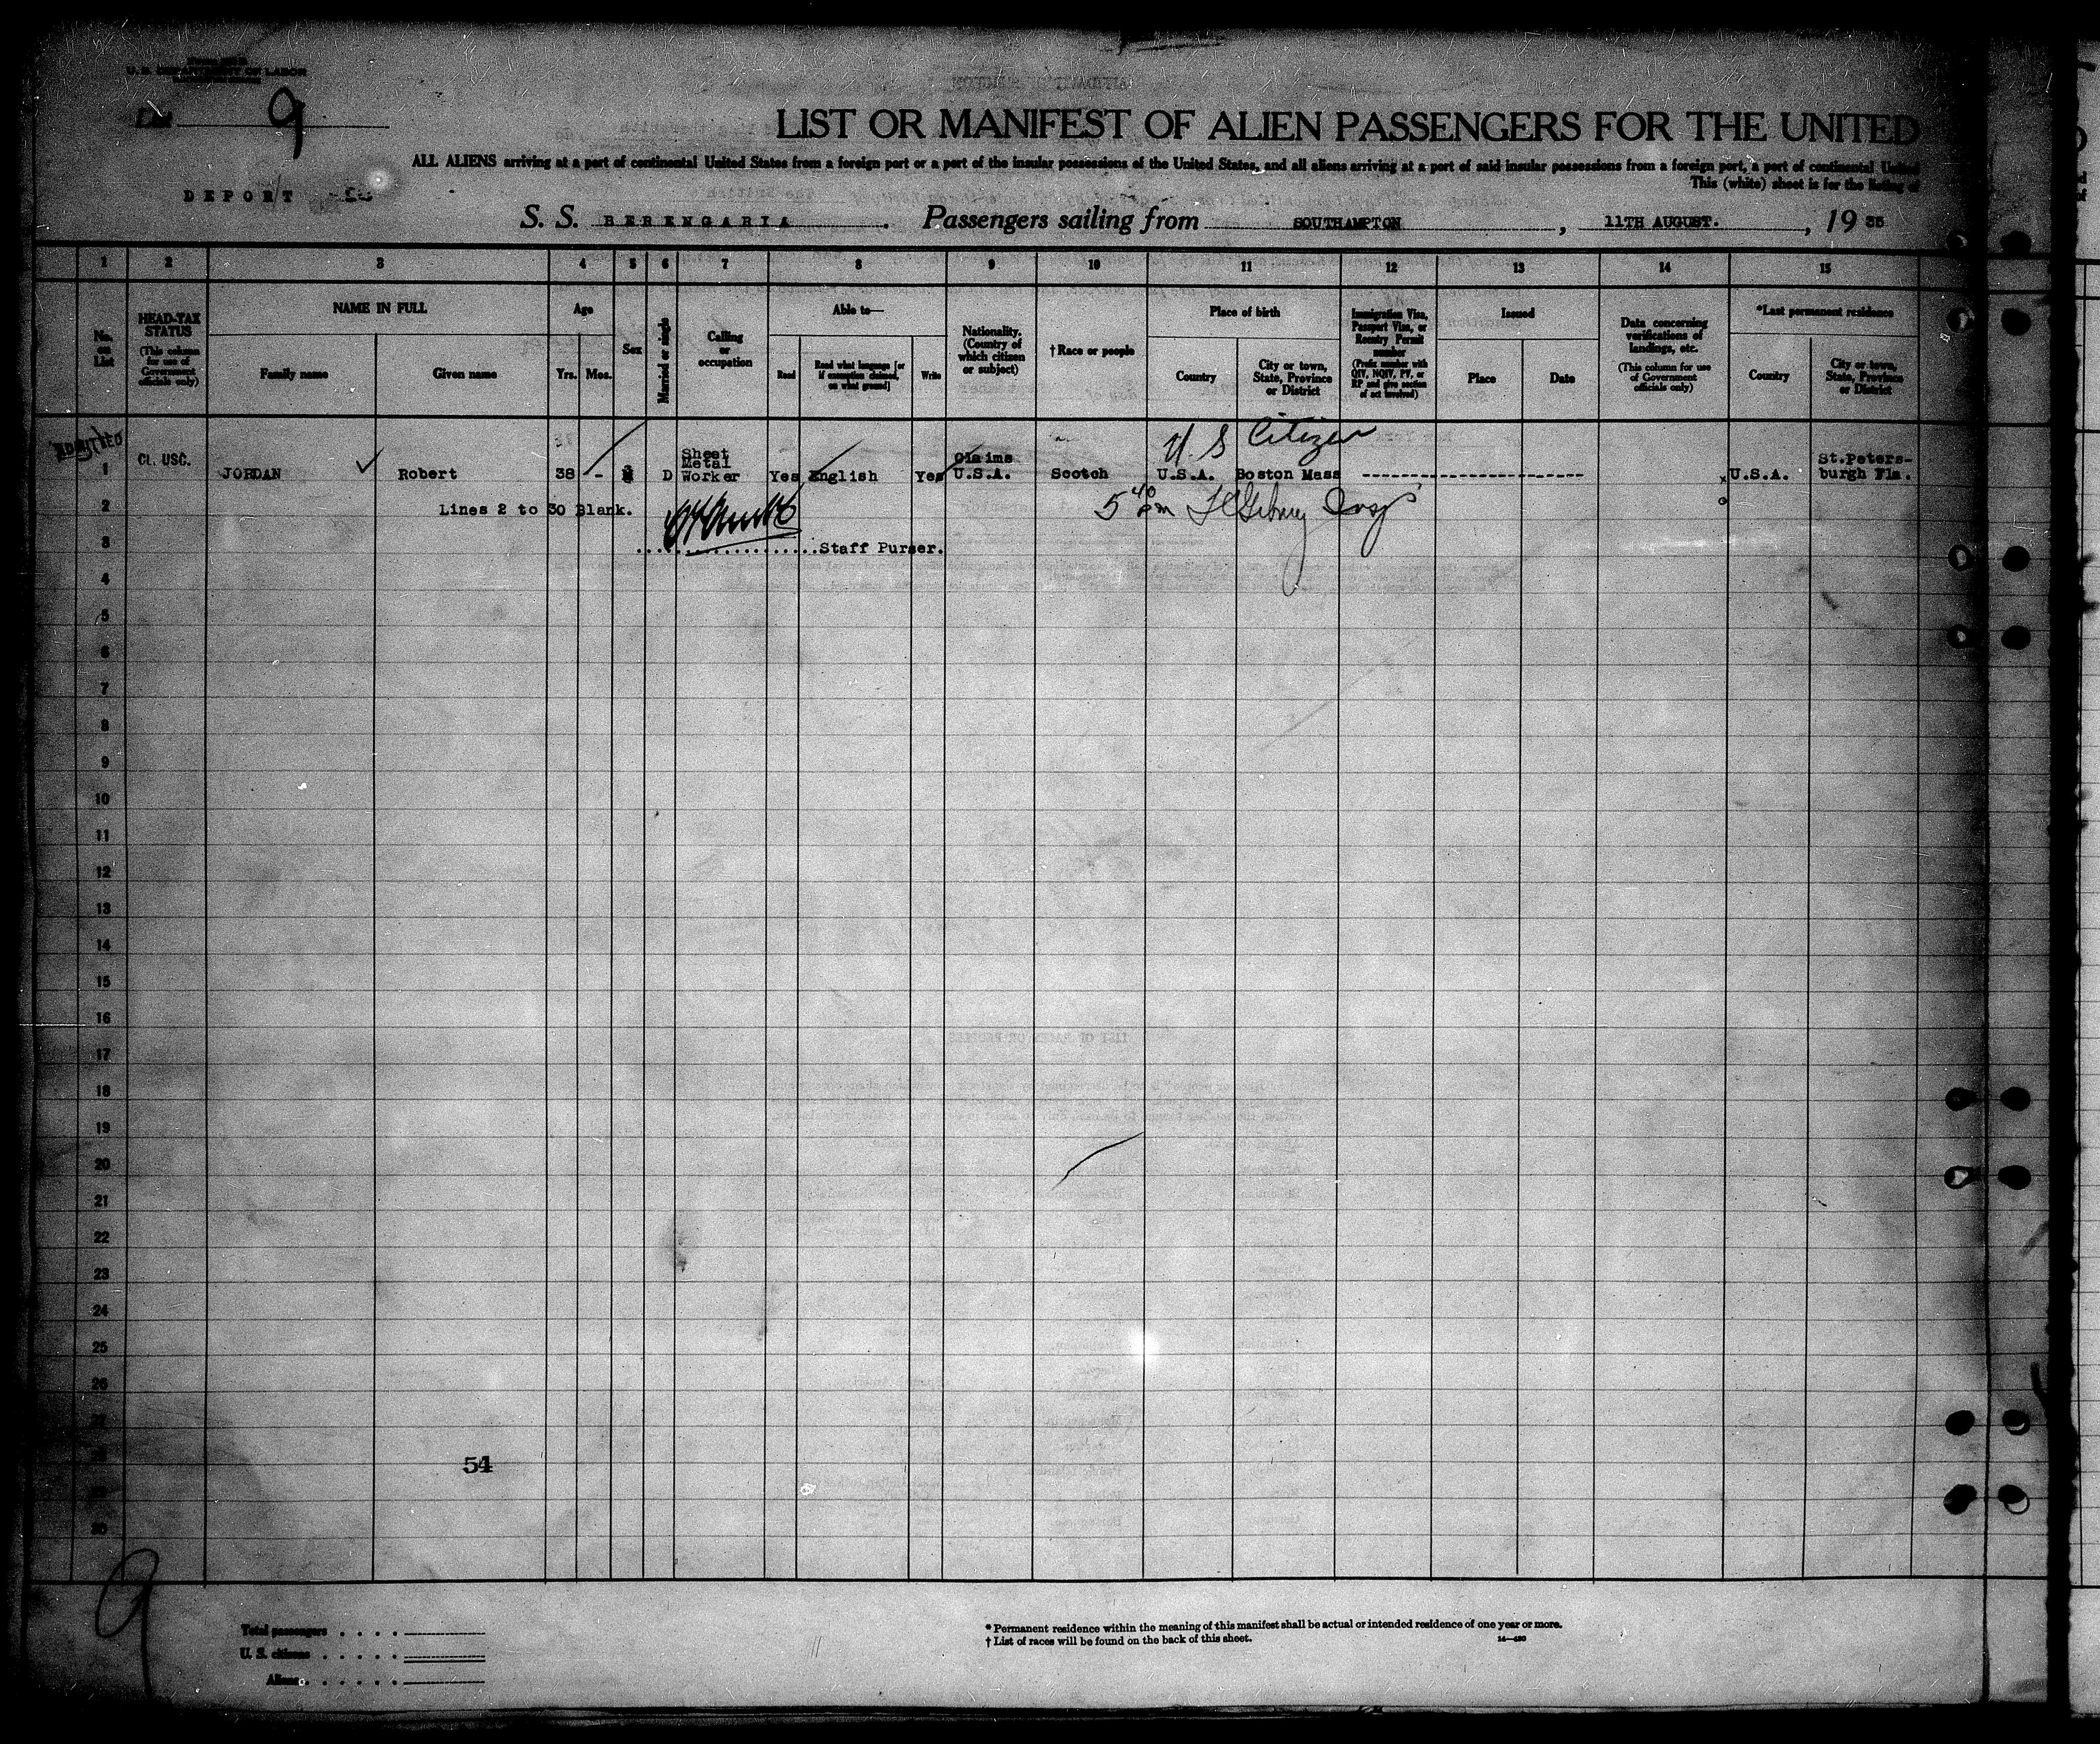 U. S. DEPARTMENT OF LABOR
List 9
LIST OR MANIFEST OF ALIEN PASSENGERS FOR THE UNITED
ALL ALIENS arriving at a port of continental United States from a foreign port or a port of the insular possessions of the United States, and all aliens arriving at a port of said insular possessions from a foreign port, a port of continental United
This (white) sheet is for the listing of
DEPORT
S. S. BERENGARIA. Passengers sailing from SOUTHAMPTON, 11TH AUGUST., 19 35
1 2 3 4 5 6 7 8 9 10 11 12 13 14 15
No. on List
HEAD-TAX STATUS
(This column for use of Government officials only)
NAME IN FULL
Family name
Given name
Age
Yrs. Mos.
Sex
Married or single
Calling or occupation
Able to—
Read
Read what language [or if exemption claimed, on what ground]
Write
Nationality. (Country of which citizen or subject)
†Race or people
Place of birth
Country
City or town, State, Province or District
Immigration Visa, Passport Visa, or Reentry Permit number
(Prefix number with QIV, NQIV, PV, or RP and give section of act involved)
Issued
Place
Date
Data concerning verifications of landings, etc.
(This column for use of Government officials only)
*Last permanent residence
Country
City or town, State, Province or District
ADMITTED
U S Citizen
1 Ct. USC. JORDAN Robert 38 - D Sheet Metal Worker Yes English Yes Claims U.S.A. Scotch U.S.A. Boston Mass U.S.A. St.Peters-burgh Fla.
2 Lines 2 to 30 Blank. 5 40 pm Insp
3 Staff Purser.
4
5
6
7
8
9
10
11
12
13
14
15
16
17
18
19
20
21
22
23
24
25
26
27
28
54
29
30
9
Total passengers
U. S. citizens
Aliens
* Permanent residence within the meaning of this manifest shall be actual or intended residence of one year or more.
† List of races will be found on the back of this sheet.
14—430